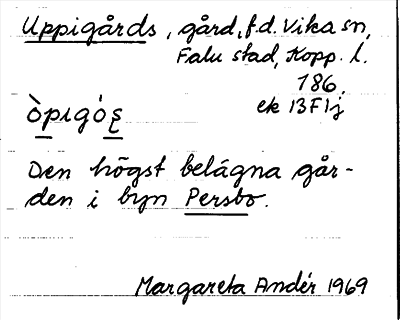 Uppigårds, gård, f.d. Vika sn,
Falu stad, Kopp. l.
186.
ek 13F1j
òpɪgó̱ʂ
Den högst belägna går-
den i byn Persbo.
Margareta Andér 1969